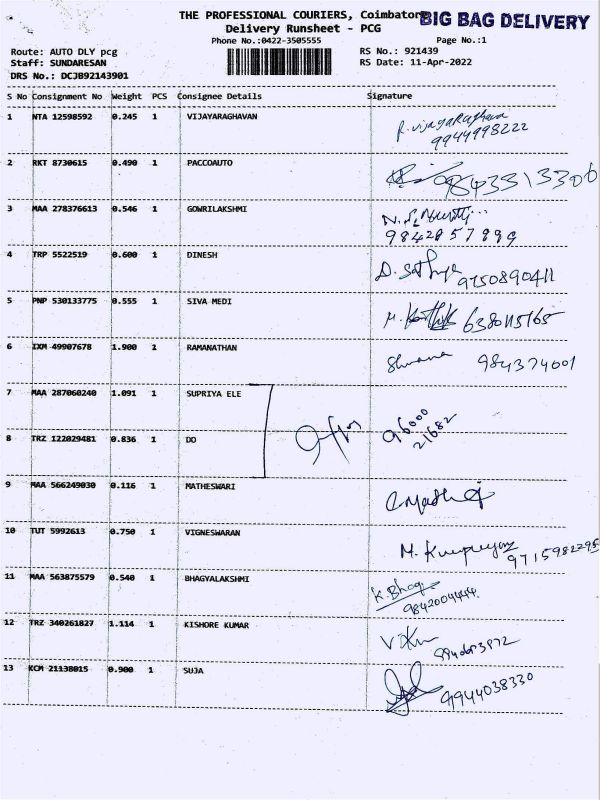 THE PROFESSIONAL COURIERS, Coimbator BIG BAG DELIVERY
Delivery Runsheet - PCG
Phone No.:0422-3505555 Page No.:1
Route: AUTO DLY pcg RS No.: 921439
Staff: SUNDARESAN RS Date: 11-Apr-2022
DRS No.: DCJB92143901
S No Consignment No Weight PCS Consignee Details Signature
1 NTA 12598592 0.245 1 VIJAYARAGHAVAN R. Vijayaraghavan
9944998222
2 RKT 8730615 0.490 1 PACCOAUTO 9843313306
3 MAA 278376613 0.546 1 GOWRILAKSHMI
9842857899
4 TRP 5522519 0.600 1 DINESH D. Sathya 9750890411
5 PNP 530133775 0.555 1 SIVA MEDI M. Karthik 6380115165
6 IXM 49907678 1.900 1 RAMANATHAN 984374001
7 MAA 287060240 1.091 1 SUPRIYA ELE 96000
21682
8 TRZ 122029481 0.836 1 DO
9 MAA 566249030 0.116 1 MATHESWARI
10 TUT 5992613 0.750 1 VIGNESWARAN M. 9715982295
11 MAA 563875579 0.540 1 BHAGYALAKSHMI K. Bhagi
9842004444
12 TRZ 340261827 1.114 1 KISHORE KUMAR
13 KCM 21138015 0.900 1 SUJA 9944038330